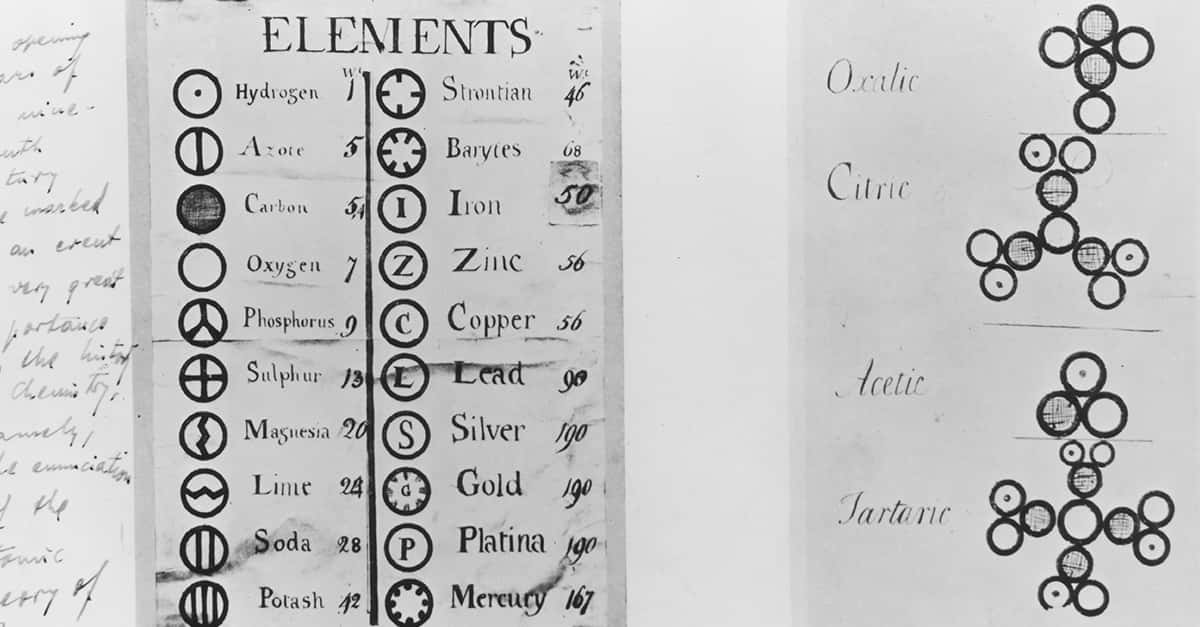 opening
ars of
nine-
enth
tury
e marked
an event
very great
portance
the history
chemistry,
amely,
he enunciation
of the
tomic
eory of
ELEMENTS
Wt
Hydrogen 1
Azote 5
Carbon 5,4
Oxygen 7
Phosphorus 9
Sulphur 13
Magnesia 20
Lime 24
Soda 28
Potash 42
Wt
Strontian 46
Barytes 68
I Iron 50
Z Zinc 56
C Copper 56
L Lead 90
S Silver 190
G Gold 190
P Platina 190
Mercury 167
Oxalic
Citric
Acetic
Tartaric